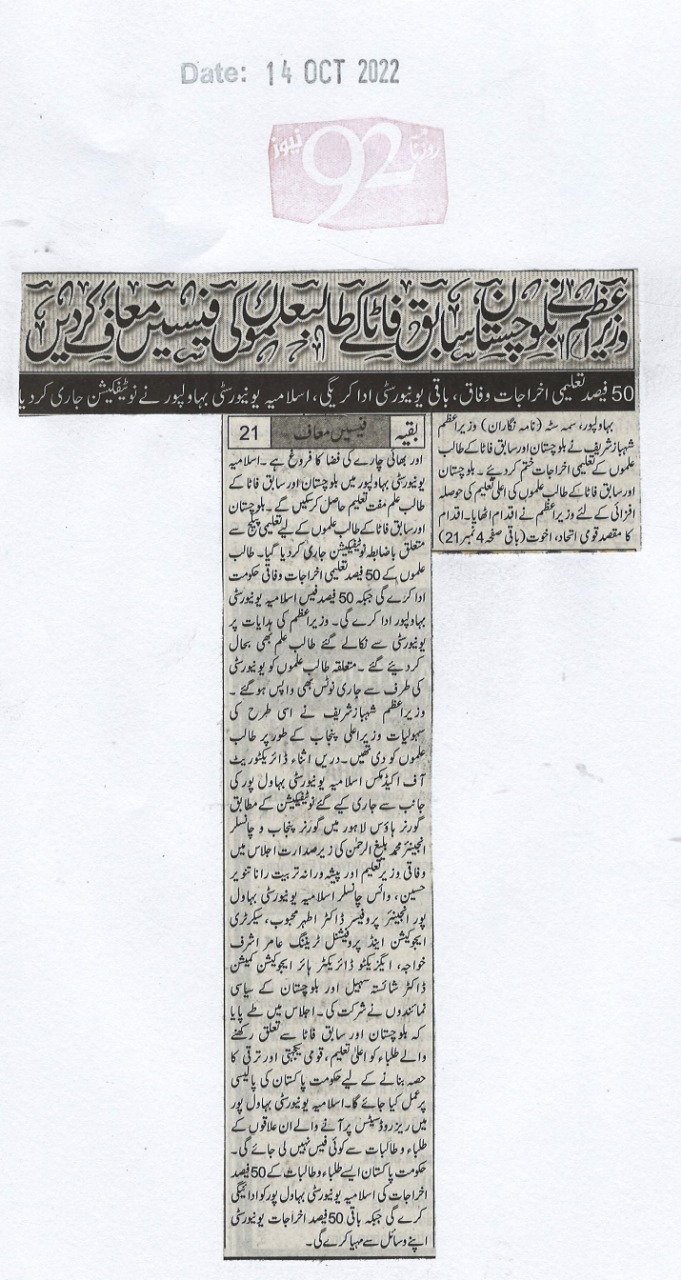 Date: 14 OCT 2022
روزنامہ 92 نیوز
وزیراعظم نے بلوچستان، سابق فاٹا کے طالبعلموں کی فیسیں معاف کر دیں
50 فیصد تعلیمی اخراجات وفاق، باقی یونیورسٹی ادا کریگی، اسلامیہ یونیورسٹی بہاولپور نے نوٹیفکیشن جاری کر دیا
بہاولپور، سمہ سٹہ (نامہ نگاران) وزیراعظم
شہباز شریف نے بلوچستان اور سابق فاٹا کے طالب
علموں کے تعلیمی اخراجات ختم کر دیئے۔ بلوچستان
اور سابق فاٹا کے طالب علموں کی اعلیٰ تعلیم کی حوصلہ
افزائی کے لئے وزیراعظم نے اقدام اٹھایا۔ اقدام
کا مقصد قومی اتحاد، اخوت (باقی صفحہ 4 نمبر 21)
بقیہ فیسیں معاف 21
اور بھائی چارے کی فضا کا فروغ ہے۔ اسلامیہ
یونیورسٹی بہاولپور میں بلوچستان اور سابق فاٹا کے
طالب علم مفت تعلیم حاصل کر سکیں گے۔ بلوچستان
اور سابق فاٹا کے طالب علموں کے لیے تعلیمی پیکج سے
متعلق باضابطہ نوٹیفکیشن جاری کر دیا گیا۔ طالب
علموں کے 50 فیصد تعلیمی اخراجات وفاقی حکومت
ادا کرے گی جبکہ 50 فیصد فیس اسلامیہ یونیورسٹی
بہاولپور ادا کرے گی۔ وزیراعظم کی ہدایات پر
یونیورسٹی سے نکالے گئے طالب علم بھی بحال
کر دیئے گئے۔ متعلقہ طالب علموں کو یونیورسٹی
کی طرف سے جاری نوٹس بھی واپس ہو گئے۔
وزیراعظم شہباز شریف نے اسی طرح کی
سہولیات وزیراعلیٰ پنجاب کے طور پر طالب
علموں کو دی تھیں۔ دریں اثناء ڈائریکٹوریٹ
آف اکیڈمکس اسلامیہ یونیورسٹی بہاول پور کی
جانب سے جاری کیے گئے نوٹیفکیشن کے مطابق
گورنر ہاؤس لاہور میں گورنر پنجاب و چانسلر
انجینئر محمد بلیغ الرحمٰن کی زیر صدارت اجلاس میں
وفاقی وزیر تعلیم اور پیشہ ورانہ تربیت رانا تنویر
حسین، وائس چانسلر اسلامیہ یونیورسٹی بہاول
پور انجینئر پروفیسر ڈاکٹر اطہر محبوب، سیکرٹری
ایجوکیشن اینڈ پروفیشنل ٹریننگ عامر اشرف
خواجہ، ایگزیکٹو ڈائریکٹر ہائر ایجوکیشن کمیشن
ڈاکٹر شائستہ سہیل اور بلوچستان کے سیاسی
نمائندوں نے شرکت کی۔ اجلاس میں طے پایا
کہ بلوچستان اور سابق فاٹا سے تعلق رکھنے
والے طلباء کو اعلیٰ تعلیم، قومی یکجہتی اور ترقی کا
حصہ بنانے کے لیے حکومت پاکستان کی پالیسی
پر عمل کیا جائے گا۔ اسلامیہ یونیورسٹی بہاول پور
میں ریزروڈ سیٹس پر آنے والے ان علاقوں کے
طلباء و طالبات سے کوئی فیس نہیں لی جائے گی۔
حکومت پاکستان ایسے طلباء و طالبات کے 50 فیصد
اخراجات کی اسلامیہ یونیورسٹی بہاول پور کو ادائیگی
کرے گی جبکہ باقی 50 فیصد اخراجات یونیورسٹی
اپنے وسائل سے مہیا کرے گی۔